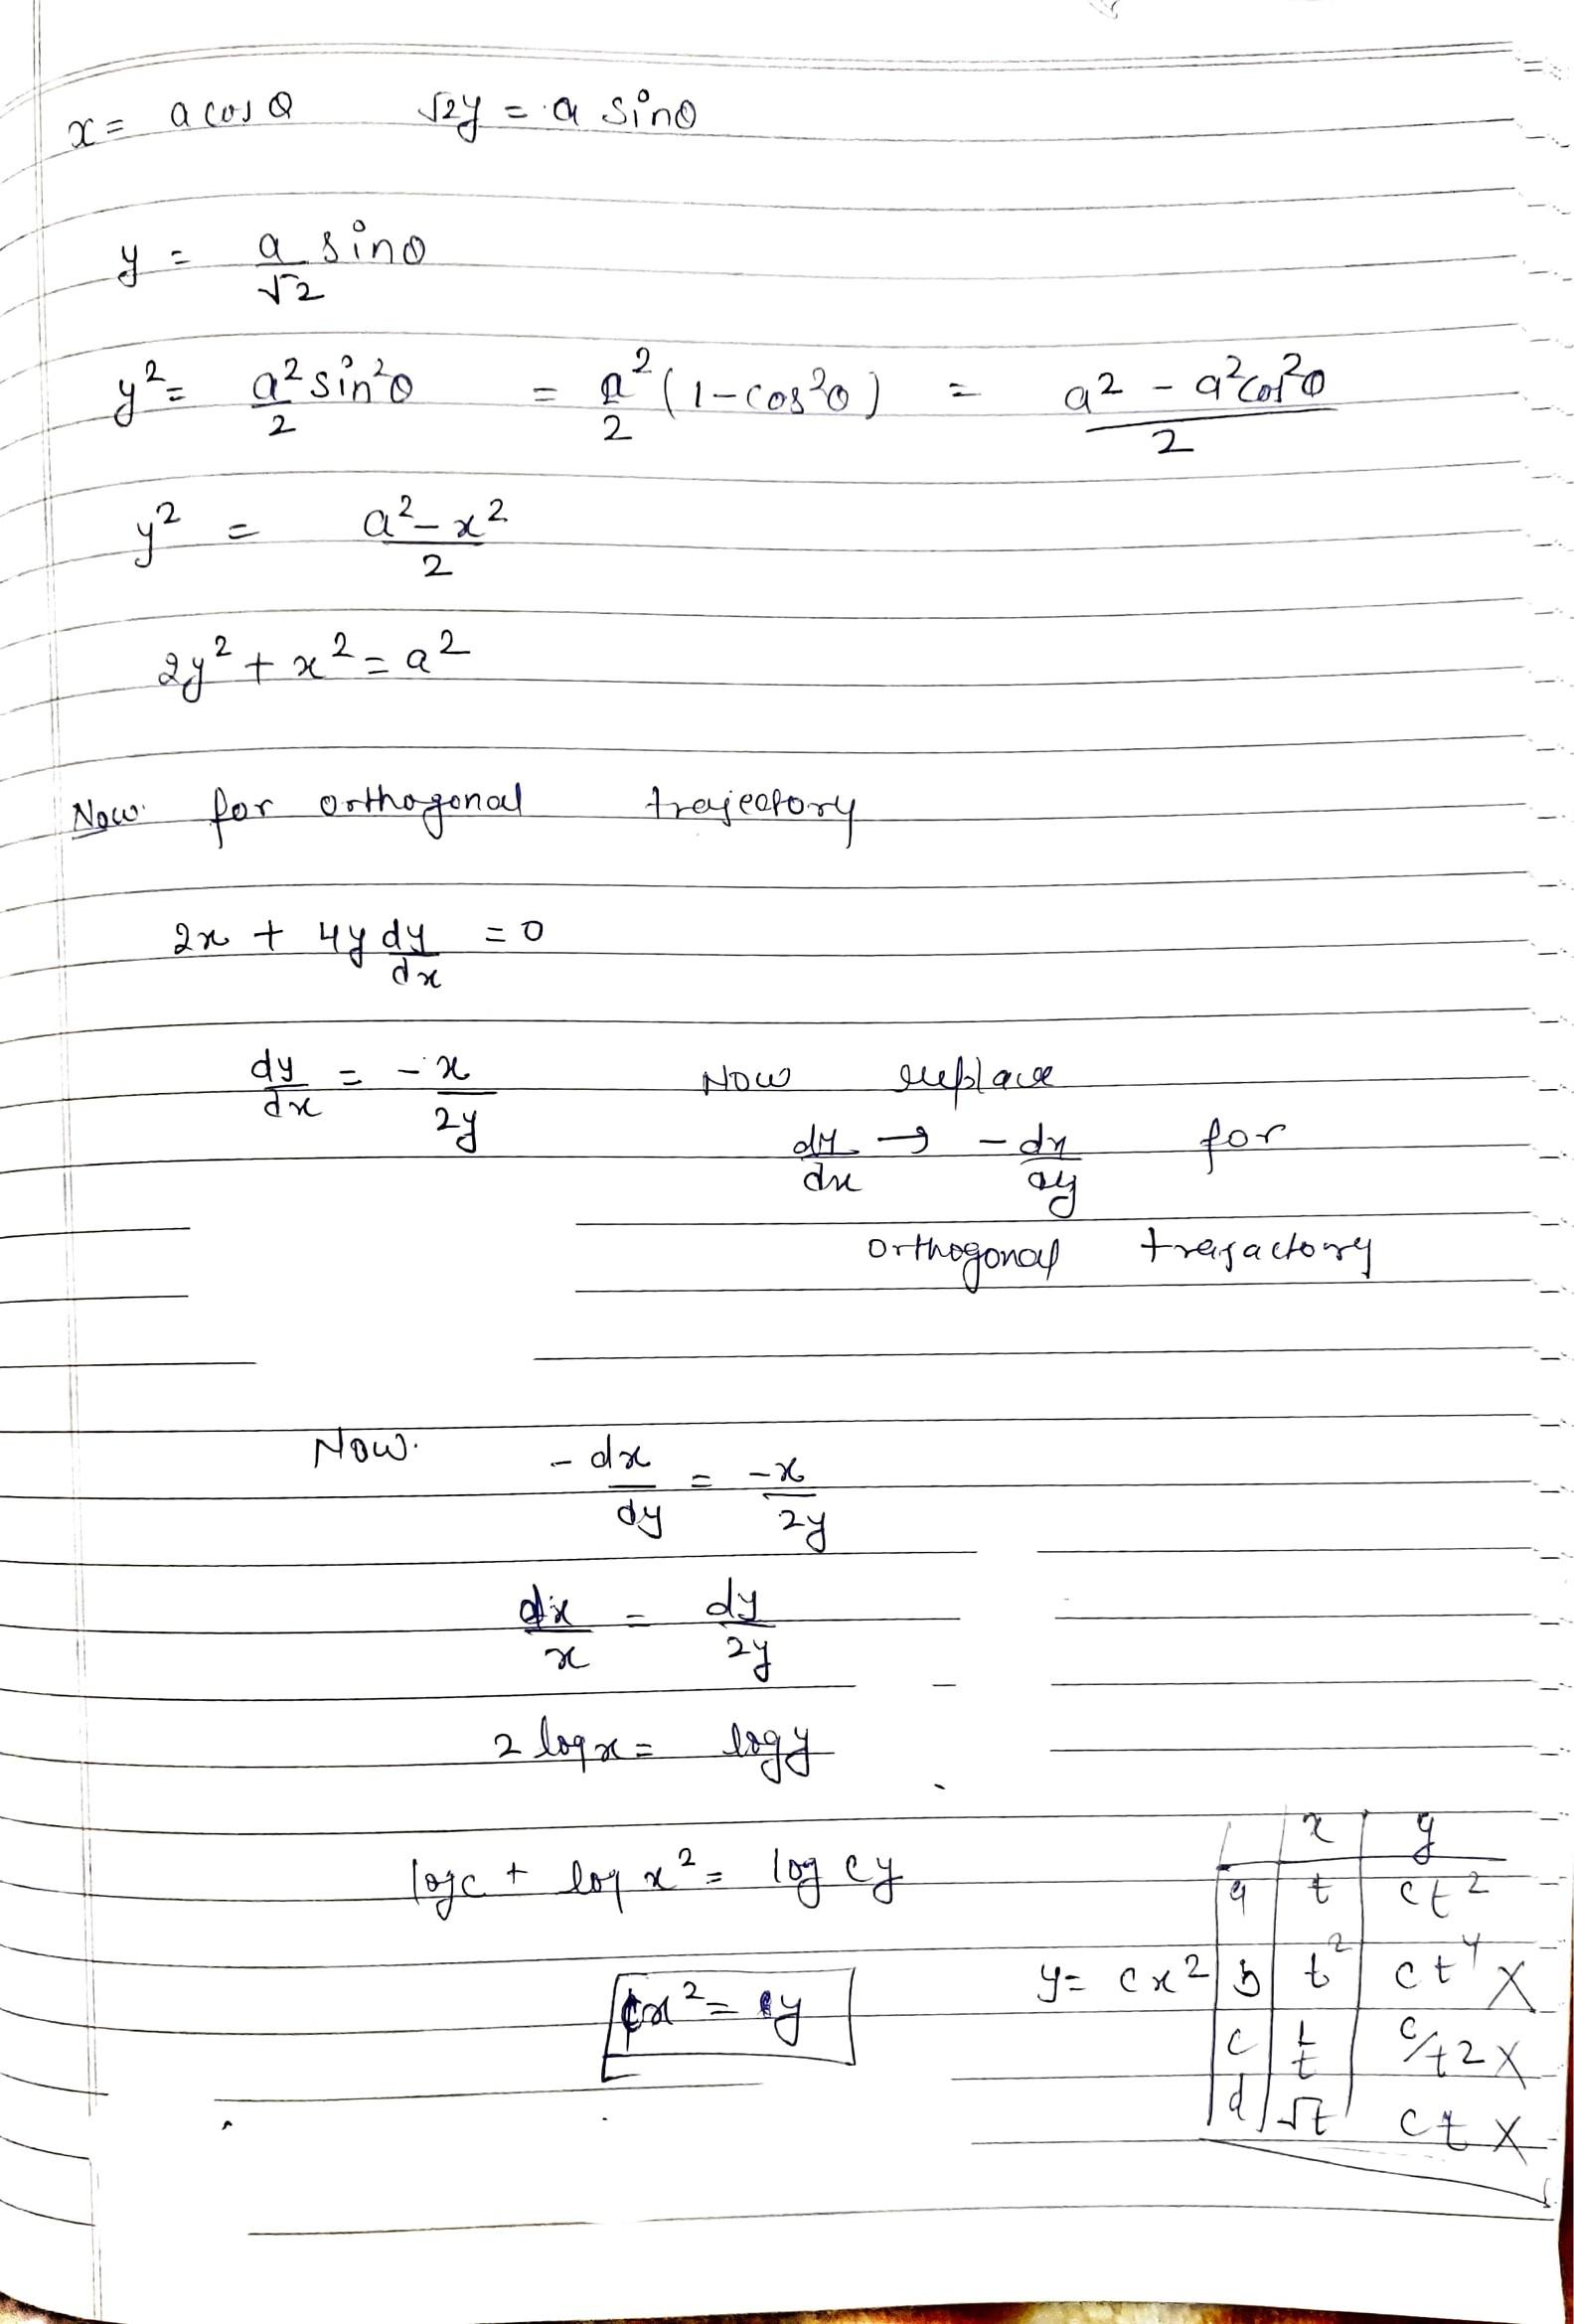 x = a cos θ √2y = a sinθ
y = a/√2 sinθ
y² = a²/2 sin²θ = a²/2 (1-cos²θ) = (a² - a²cos²θ)/2
y² = (a² - x²)/2
2y² + x² = a²
Now for orthogonal trajectory
2x + 4y dy/dx = 0
dy/dx = -x/2y Now replace
dy/dx → -dx/dy for
orthogonal trajactory
Now. -dx/dy = -x/2y
dx/x = dy/2y
2 log x = log y
logc + log x² = log cy
x y
a t ct²
cx² = y y = cx² b t² ct⁴ X
c 1/t c/t2 X
d √t ct X